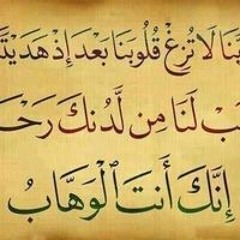 بَّنَا لَا تُزِغْ قُلُوبَنَا بَعْدَ إِذْ هَدَيْتَ
بْ لَنَا مِن لَّدُنكَ رَحْمَ
إِنَّكَ أَنتَ ٱلْوَهَّابُ